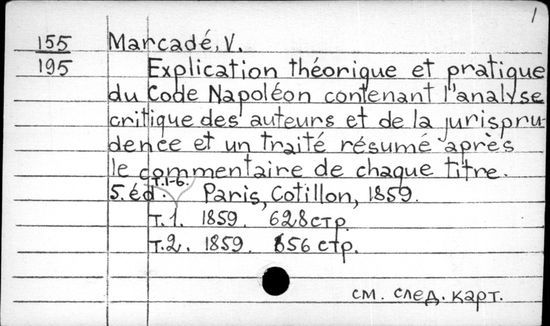 1
155 Marcadé, V.
195 Explication théorique et pratique
du Code Napoléon contenant l'analyse
critique des auteurs et de la jurispru-
dence et un traité résumé après
le commentaire de chaque titre.
т.1-6.
5. éd. Paris, Cotillon, 1859.
т.1. 1859. 628 стр.
т.2. 1859. 656 стр.
см. след. карт.